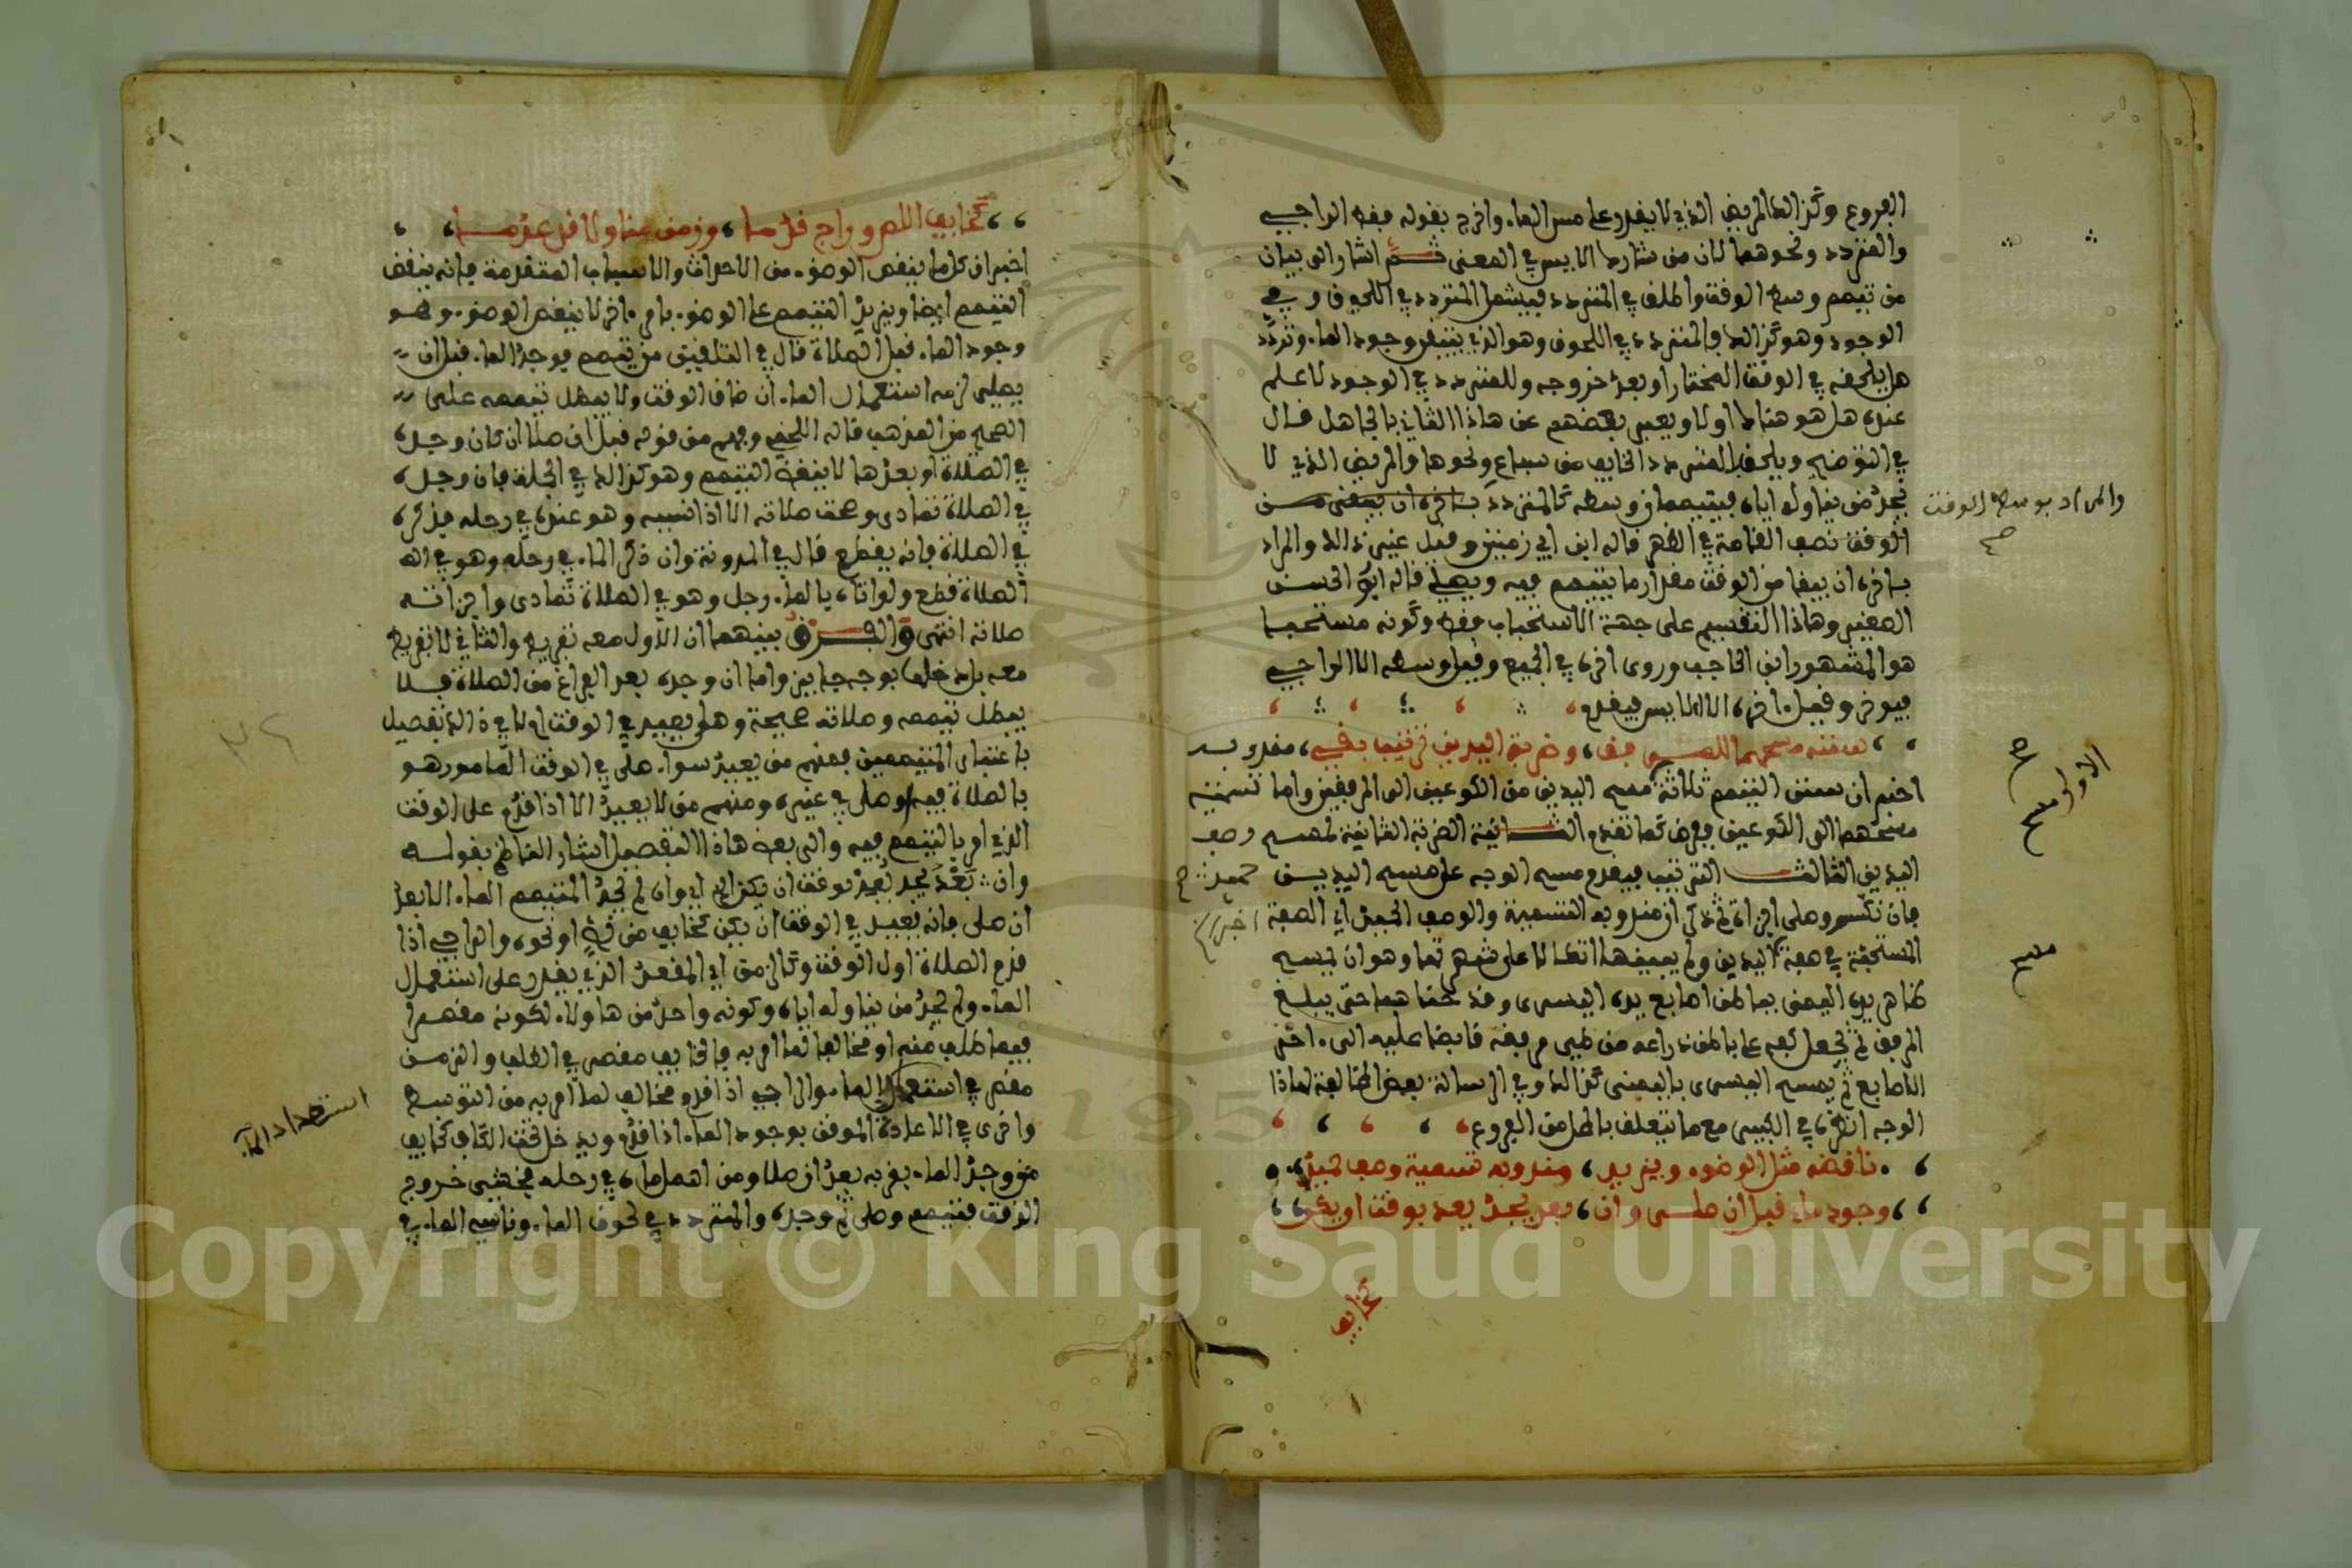 الفروع وكذالك المريض الذي لا يقدر على مس الماء وأخرج بقوله فقط الراجي
والمتردد ونحوهما لأن من شاركه الآيس في المعنى ثم أشار إلى بيان
من تيمم وسط الوقت وأطلق في المتردد فيشمل المتردد في اللحوق وفي
الوجود وهو كذالك فالمتردد في اللحوق وهو الذي يتيقن وجود الماء وتردد
هل يلحقه في الوقت المختار أو بعد خروجه والمتردد في الوجود لا علم
عنده هل هو هناك أو لا ويعبر بعضهم عن هاذا الثاني بالجاهل قال
في التوضيح ويلحق بالمتردد الخايف من سباع ونحوها والمريض الذي لا
يجد من يناوله إياه فيتيممان وسطه كالمتردد
الوقت نصف القامة في الظهر قاله ابن أبي زمنين وقيل غير ذالك والمراد
بآخره أن يبقا من الوقت مقدار ما يتيمم فيه ويصلي قاله أبو الحسن
الصغير وهاذا التقسيم على جهة الاستحباب فقط وكونه مستحبا
هو المشهور ابن الحاجب وروي آخره في الجميع وقيل وسطه إلا الراجي
فيؤخر وقيل آخره إلا الآيس فيقدم
سننه مسحهما للمرفق وضربة اليدين ترتيب بقي مندوبه
أخبر أن سنن التيمم ثلاثة مسح اليدين من الكوعين إلى المرفقين وأما
مسحهما إلى الكوعين ففرض كما تقدم الثانية الضربة الثانية لمسح
اليدين الثالث الترتيب فيقدم مسح الوجه على مسح اليدين
فإن نكس وصلى أجزأه ثم ذكر أن مندوبه التسمية والوصف الحميد أي الصفة
المستحبة في صفة اليدين ولم يبينها اتكالا على شهرتها وهو أن يمسح
ظاهر يده اليمنى بباطن أصابع يده اليسرى وقد حناهما حتى يبلغ
المرفق ثم يجعل كفه على باطن ذراعه من طي مرفقه قابضا عليه إلى آخر
الأصابع ثم يمسح اليسرى باليمنى كذالك وفي الرسالة بعض المخالفة لهاذا
الوجه انظره في الكبير مع ما يتعلق بالمحل من الفروع
ناقضه مثل الوضوء ويزيد مندوبه تسمية وصف حميد
وجود ماء قبل أن صلى وإن بعد يجد يعد بوقت أن يكن
كخايف
والمراد بوسط الوقت
صح
الأولى
مسح
كخايف اللص وراج قدما وزمن مناولا قد عدما
أخبر أن كل ما ينقض الوضوء من الأحداث والأسباب المتقدمة فإنه ينقض
التيمم أيضا ويزيد التيمم على الوضوء بأمر آخر لا ينقض الوضوء وهو
وجود الماء قبل الصلاة قال في التلقين من تيمم فوجد الماء قبل أن
يصلي لزمه استعمال الماء إن ضاق الوقت ولا يبطل تيممه على
الصحيح من المذهب قاله اللخمي وفهم من قوله قبل أن صلا إن كان وجده
في الصلاة أو بعدها لا ينقض التيمم وهو كذالك في الجملة فإن وجده
في الصلاة تمادى وصحت صلاته إلا إذا نسيه وهو عنده في رحله فيذكره
في الصلاة فإنه يقطع قال في المدونة وإن ذكر الماء في رحله وهو في
الصلاة قطع ولو أتاه بالماء رجل وهو في الصلاة تمادى وأجزأته
صلاته انتهى والفرق بينهما أن الأول معه تفريط والثاني لا تفريط
معه بل دخلها بوجه جايز وأما إن وجده بعد الفراغ من الصلاة فلا
يبطل تيممه وصلاته صحيحة وهل يعيد في الوقت أو لا في ذالك تفصيل
باعتبار المتيممين فمنهم من يعيد سواء صلى في الوقت المأمور هو
بالصلاة فيه أو صلى في غيره ومنهم من لا يعيد إلا إذا قدم على الوقت
الذي أمر بالتيمم فيه وإلى بعض هاذا التفصيل أشار الناظم بقوله
وإن بعد يجد يعد بوقت إن يكن أي وإن لم يجد المتيمم الماء إلا بعد
أن صلى فإنه يعيد في الوقت إن يكن كخايف من لص أو نحوه والراجي إذا
قدم الصلاة أول الوقت وكالزمن أي المقعد الذي يقدر على استعمال
الماء ولم يجد من يناوله إياه وكونه واحد من هاولاء لكونه مقصرا
فيما طلب منه أو مخالفا لما أمر به فالخايف مقصر في الطلب والزمن
مقصر في استعداد الماء والراجي إذا قدم مخالف لما أمر به من التوسط
وأخرى في الإعادة الموقن بوجود الماء إذا قدم ويدخل تحت الكاف كخايف
من وجد الماء بقربه بعد أن صلا ومن أهمل ما في رحله فخشي خروج
الوقت فتيمم وصلى ثم وجده والمتردد في لحوق الماء وناسي الماء في
استعداد الماء